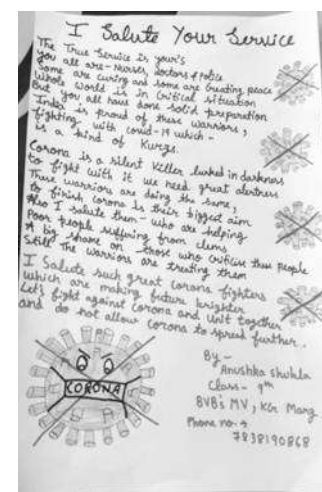 I Salute Your Service
The True Service is your's
You all are - nurses, doctors & police
Some are curing and some are creating peace
Whole world is in critical situation
But you all have done solid preparation
India is proud of these warriors,
fighting with covid-19 which -
is a kind of
Corona is a silent killer lurked in darkness
to fight with it we need great alertness
These warriors are doing the same,
to finish corona is their biggest aim
Also I salute them - who are helping
Poor people suffering from
A big shame on those who criticise these people
Still The warriors are treating them
I Salute such great corona fighters
which are making future brighter
Let's fight against corona and unit together
and do not allow corona to spread further.
CORONA
By -
Anushka Shukla
Class - 9th
BVB's MV, KG Marg
Phone no. →
7838190868